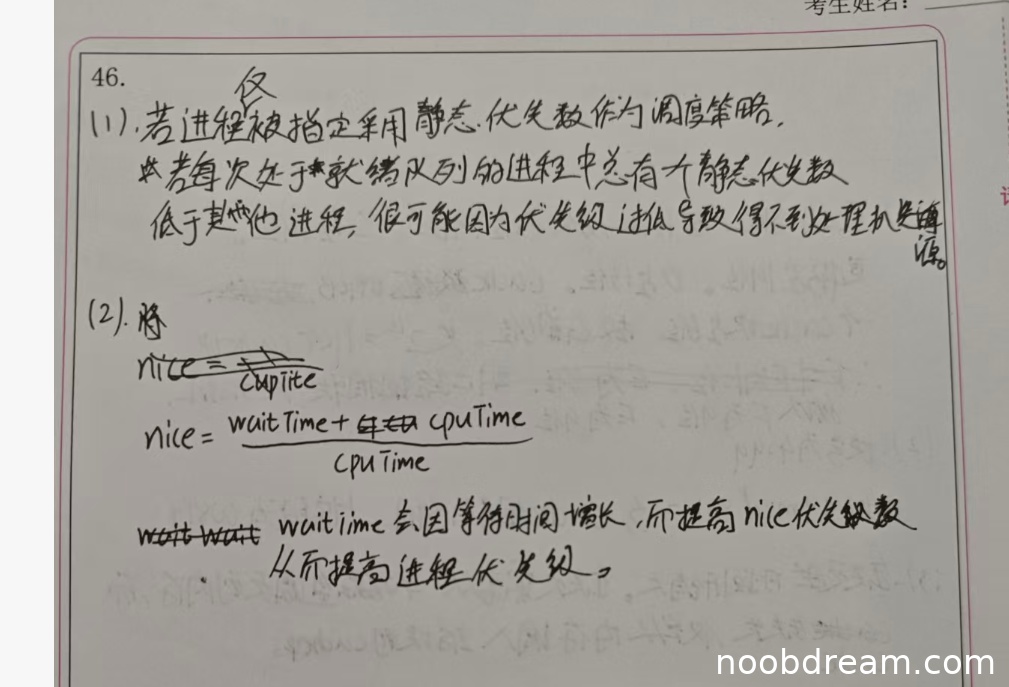 考生姓名:
46.
(1).若进程仅被指定采用静态优先数作为调度策略,
若每次处于就绪队列的进程中总有个静态优先数
低于其他进程,很可能因为优先级过低导致得不到处理机资源。
(2).将
nice =
cupTite
nice = waitTime + cpuTime
cpuTime
waitTime会因等待时间增长,而提高nice优先级数
从而提高进程优先级。
noobdream.com